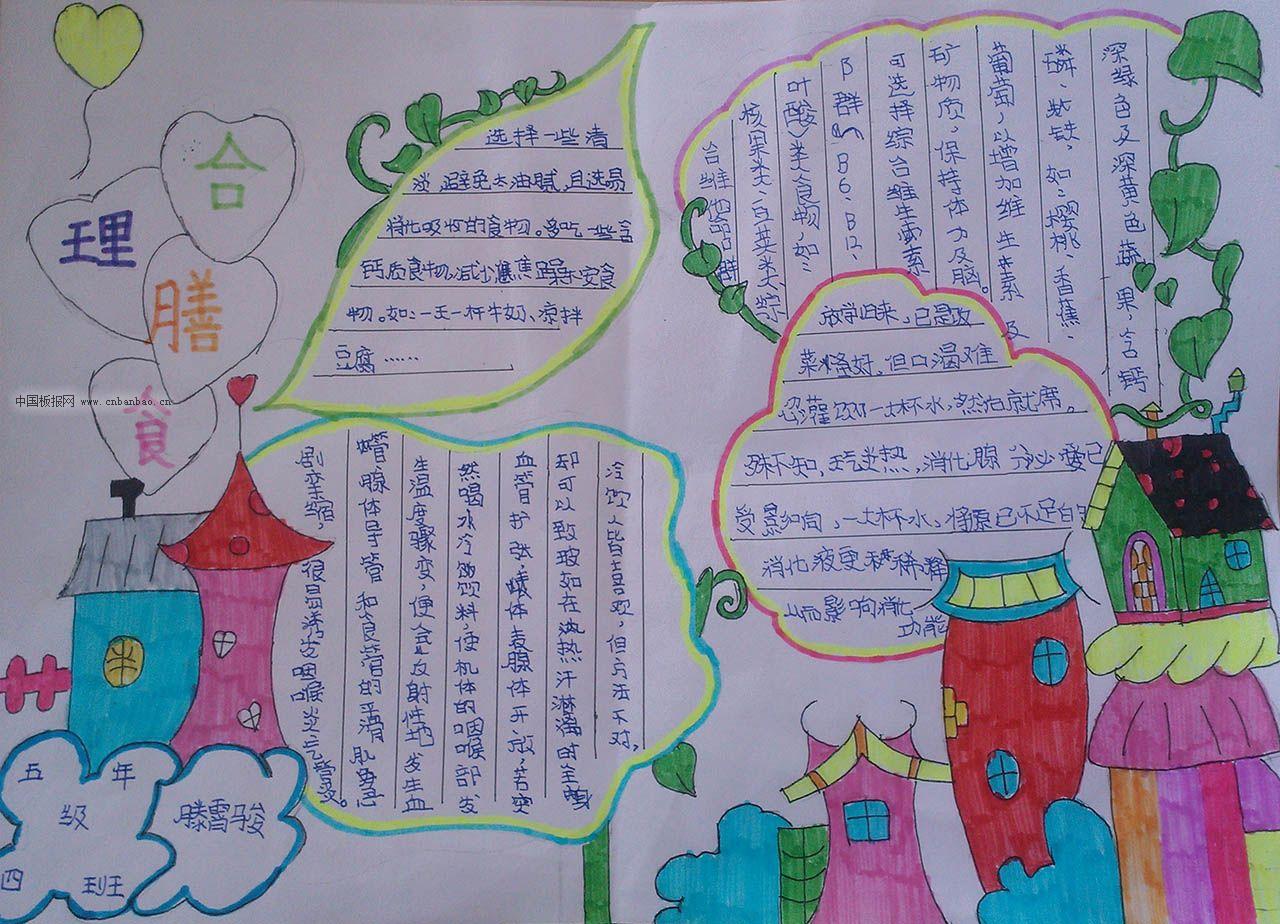 合
理
膳
食
中国板报网 www.cnbanbao.cn
选择一些清
淡、避免太油腻,且选易
消化吸收的食物。多吃一些含
钙质食物,减少焦躁不安食
物。如:一天一杯牛奶、凉拌
豆腐……
深绿色及深黄色蔬果,含钙
磷、铁,如:樱桃、香蕉、
葡萄,以增加维生素及
矿物质,保持体力及脑。
可选择综合维生素
B群(B6、B12、
叶酸)类食物,如:
核果类、白菜类、综
合维他命B群
放学归来,已是饭
菜烧好,但口渴难
忍灌一大杯水,然后就席。
殊不知,天气炎热,消化腺分泌已
受影响,一大杯水,将原已不足的
消化液更稀释
从而影响消化
功能
冷饮人皆喜欢,但方法不对,
却可以致玻如在炎热汗淋漓时全身
血管扩张,体表腺体开放,若突
然喝水冷饮料,使机体的咽喉部发
生温度骤变,便会反射性地发生血
管、腺体导管和食管的平滑肌
剧挛缩,很易诱发咽喉炎、气管炎。
五年
级
四班
滕雪骏